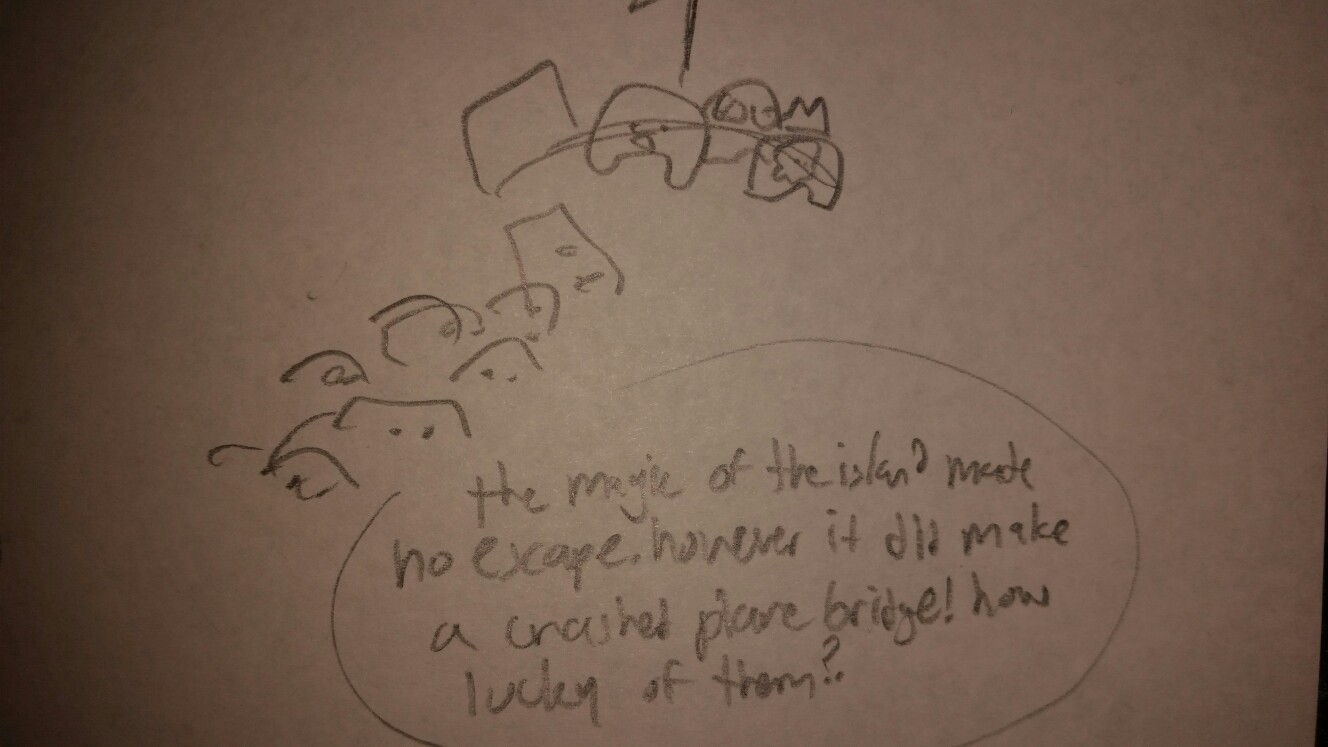 the magic of the island made
no escape. however it did make
a crashed plane bridge! how
lucky of them?